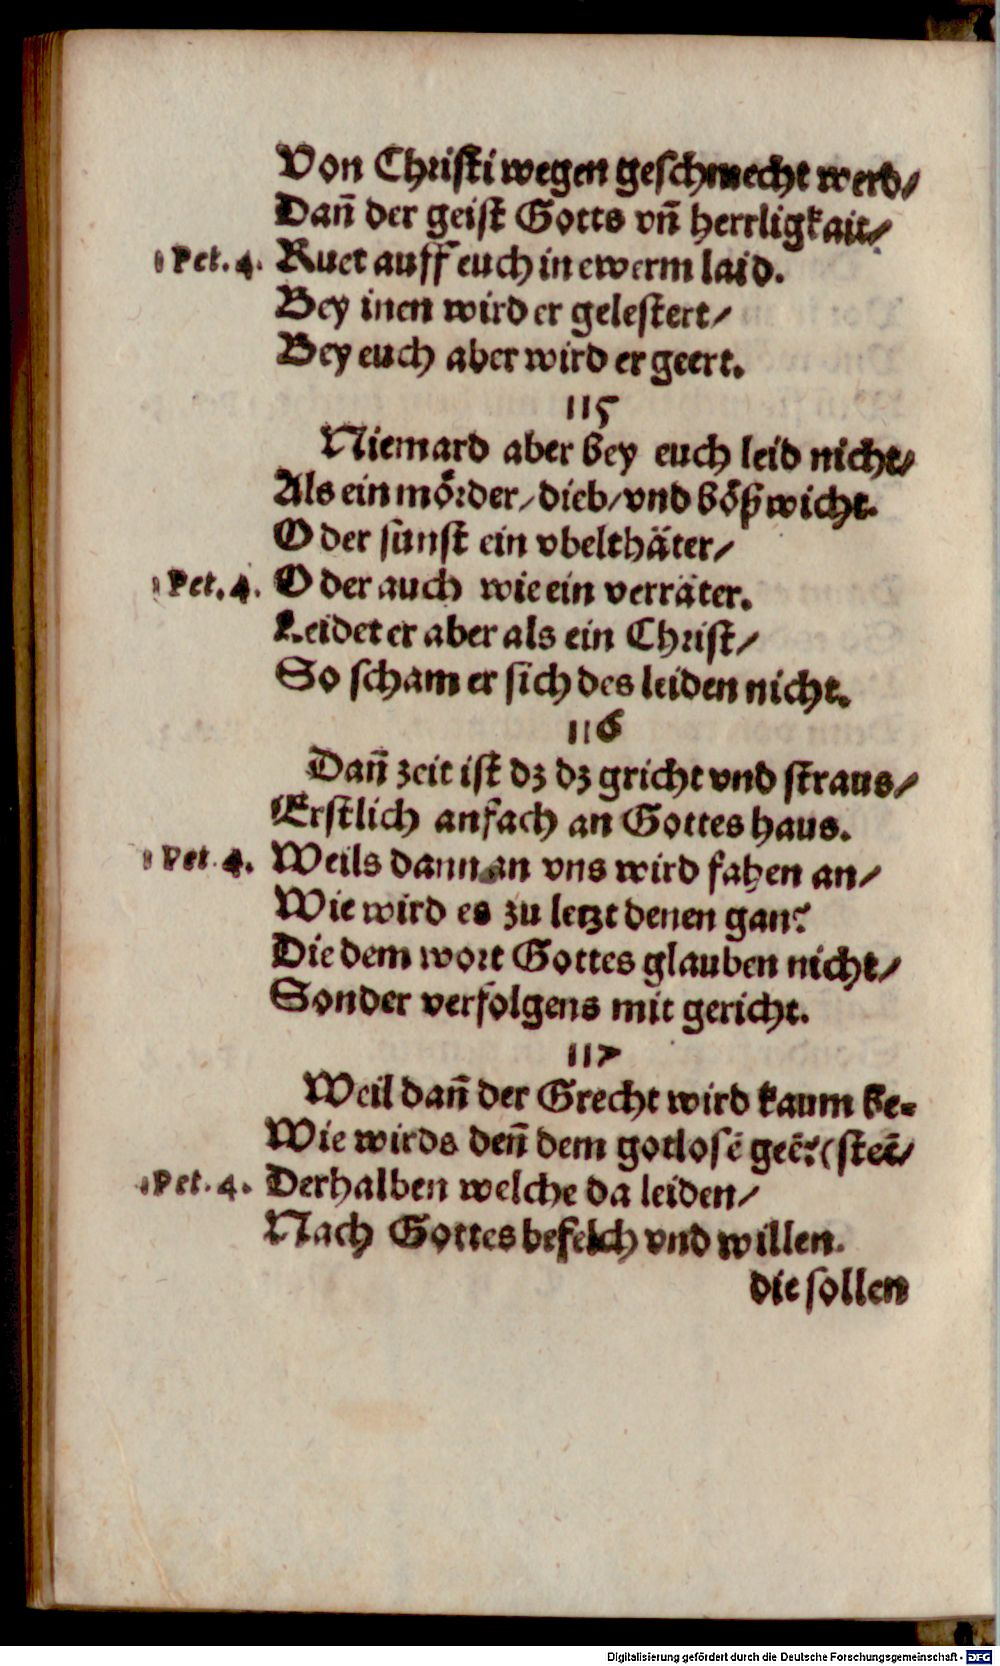 Von Christi wegen geschmecht werd/
Dañ der geist Gotts vñ herrligkait/
1 Pet. 4. Ruet auff euch in ewerm laid.
Bey inen wird er gelestert/
Bey euch aber wird er geert.
115
Niemard aber bey euch leid nicht/
Als ein mörder/dieb/vnd bößwicht.
Oder sunst ein vbelthäter/
1 Pet. 4. Oder auch wie ein verräter.
Leidet er aber als ein Christ/
So scham er sich des leiden nicht.
116
Dañ zeit ist dz dz gricht vnd straus/
Erstlich anfach an Gottes haus.
1 Pet. 4. Weils dann an vns wird fahen an/
Wie wird es zu letzt denen gan?
Die dem wort Gottes glauben nicht/
Sonder verfolgens mit gericht.
117
Weil dañ der Grecht wird kaum be=
Wie wirds deñ dem gotlosẽ geẽ?(steẽ/
1 Pet. 4. Derhalben welche da leiden/
Nach Gottes befelch vnd willen.
die sollen
Digitalisierung gefördert durch die Deutsche Forschungsgemeinschaft - DFG